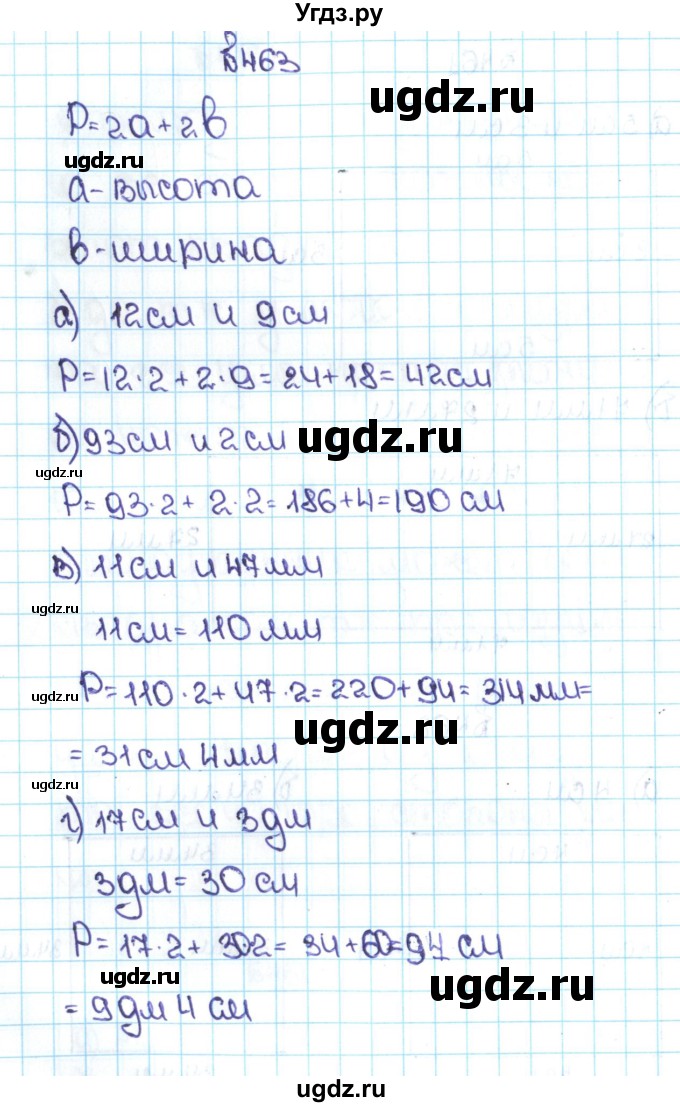 Угдз.ру
№463
ugdz.ru
P=2a+2в
ugdz.ru
а-высота
в-ширина
а) 12см и 9см
P=12·2+2·9=24+18=42см
б) 93см и 2см
ugdz.ru
ugdz.ru
P=93·2+2·2=186+4=190см
в) 11см и 47мм
ugdz.ru
11см=110мм
P=110·2+47·2=220+94=314мм=
ugdz.ru
ugdz.ru
=31см 4мм
ugdz.ru
г) 17см и 3дм
3дм=30см
P=17·2+30·2=34+60=94см
ugdz.ru
ugdz.ru
=9дм 4см
ugdz.ru